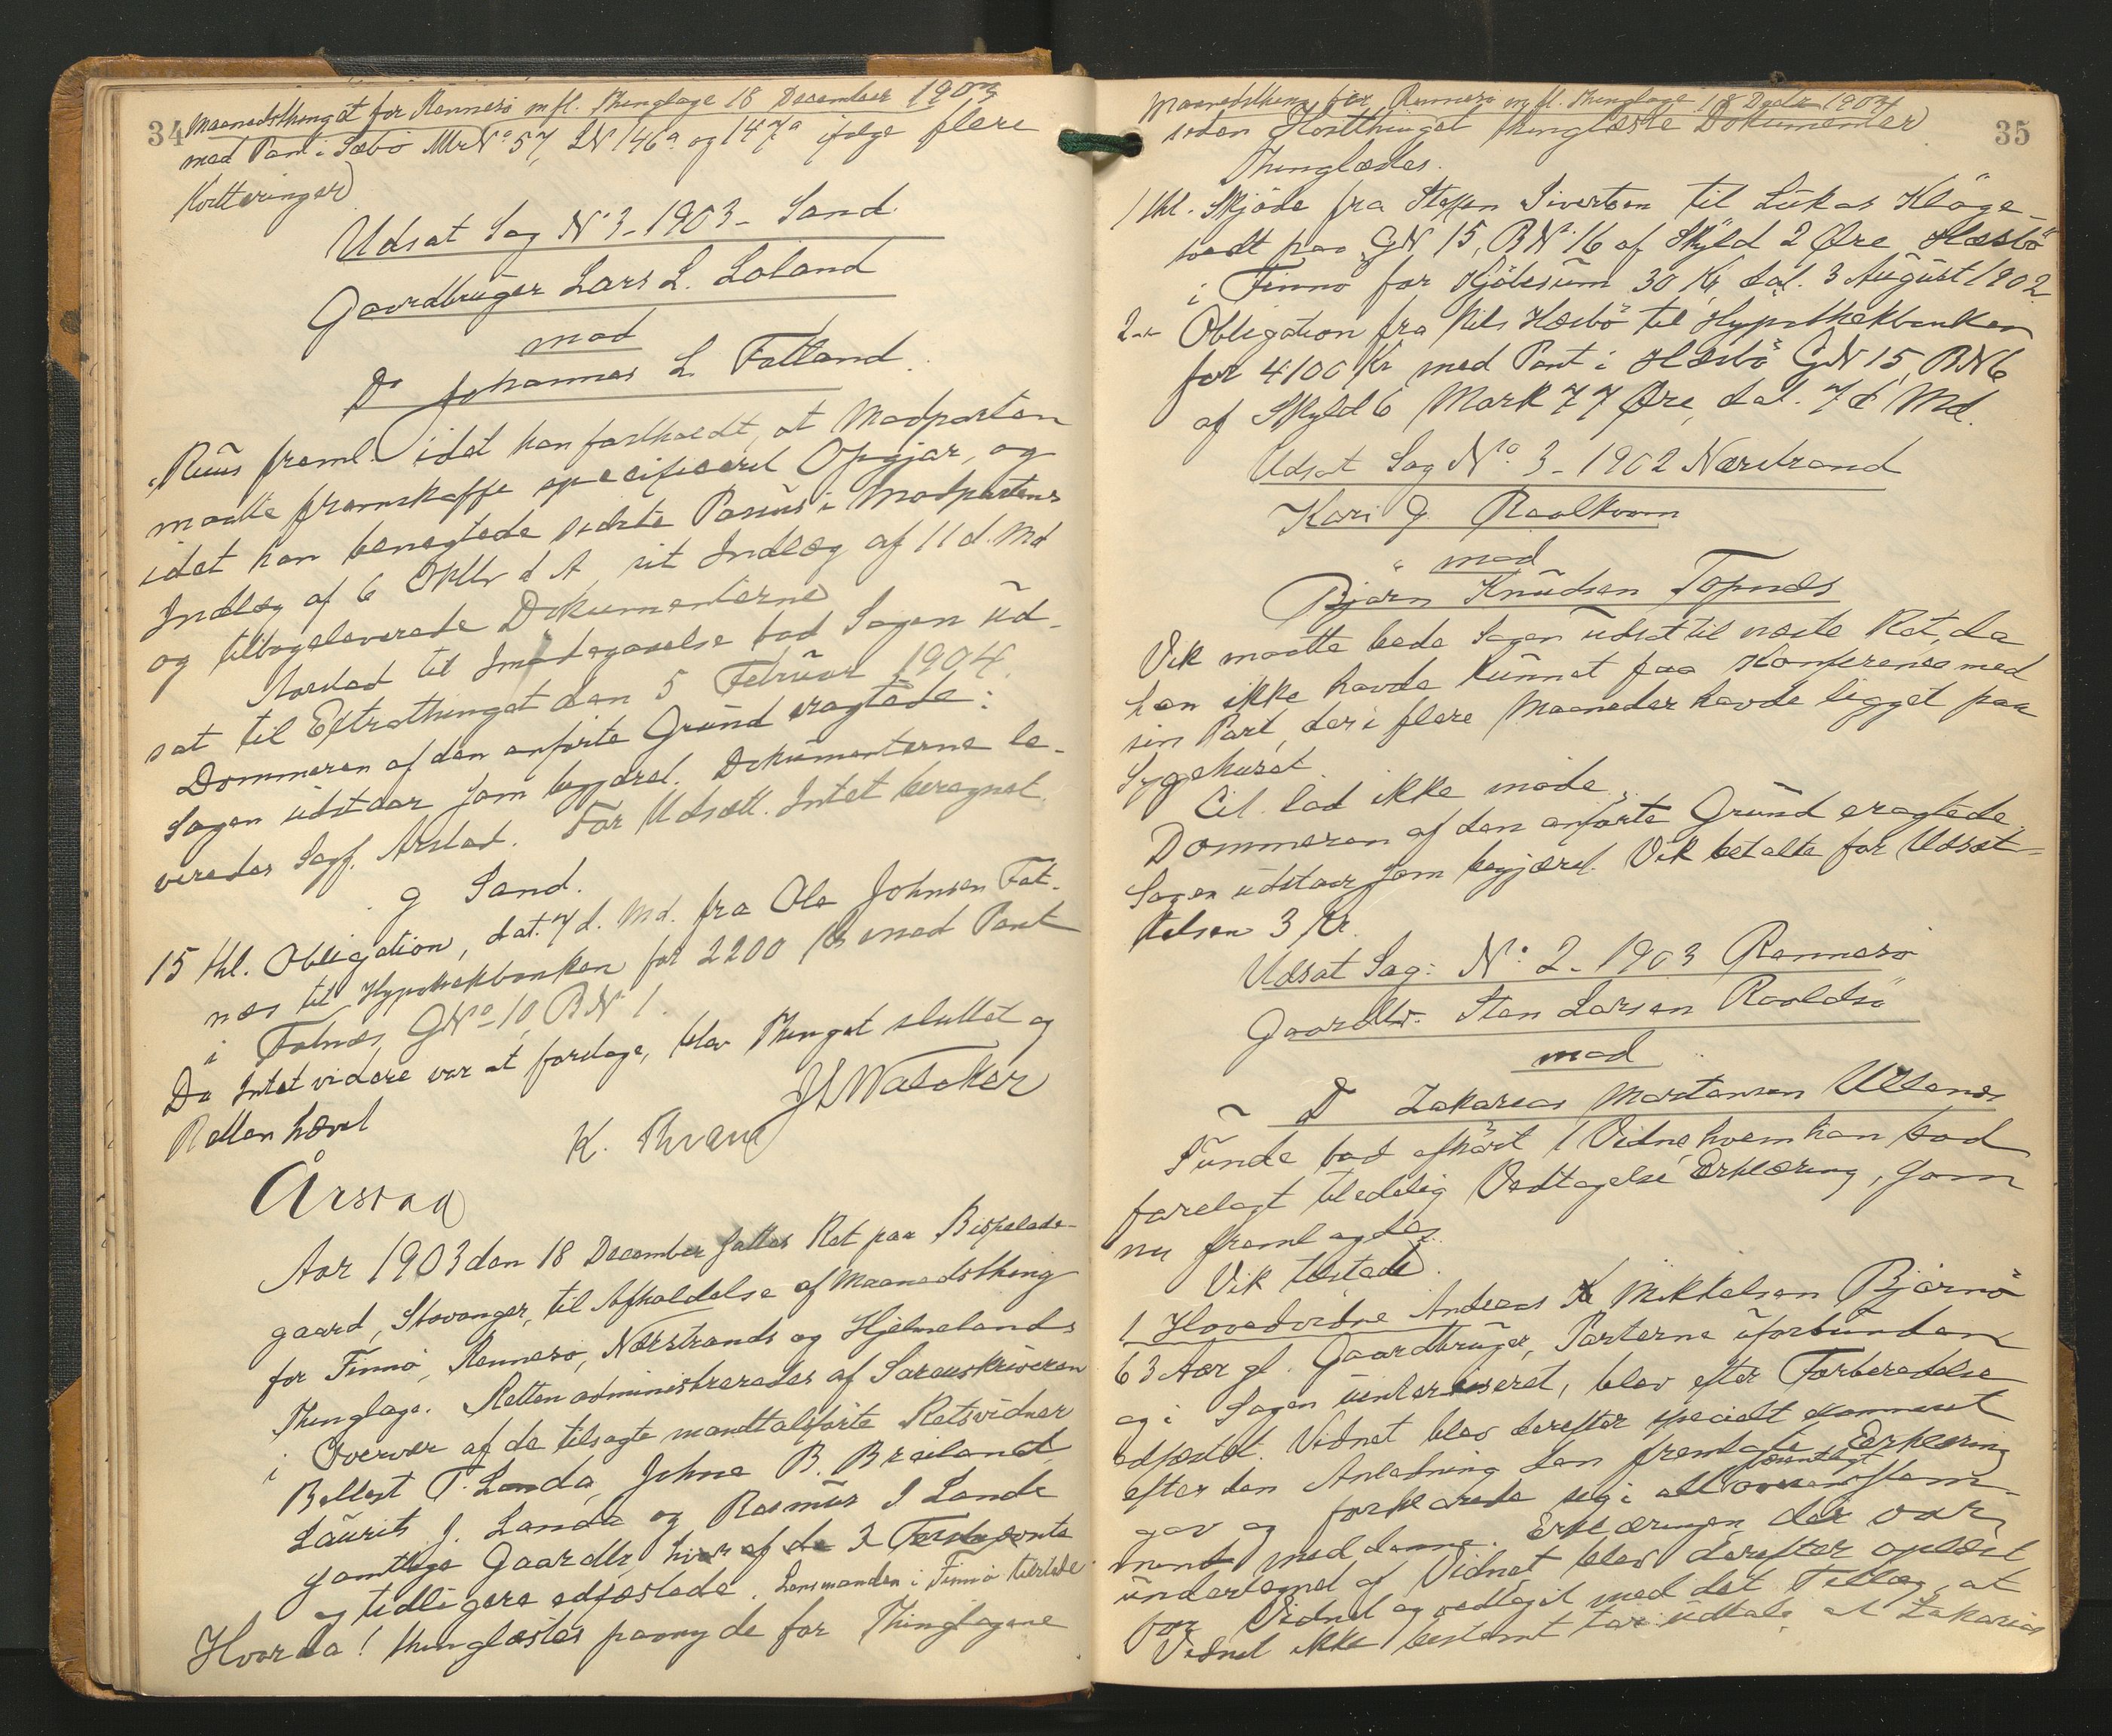 34 Maanedsthinget for Rennesø m fl. Thinglage 18 December 1903
med Pant i Sæbø Mr Nº 57, LN 146a og 147a ifølge flere
Kvitteringer
Udsat Sag Nº 3 - 1903 - Sand
Gaardbruger Lars L. Løland
mod
Dº Johannes L Fatland.
Ruus freml. idet han fastholdt, at Modparten
maatte fremskaffe specificeret Opgjør, og
idet han benegtede sidste Passus i Modpartens
Indlæg af 6 Oktbr d A, sit Indlæg af 11 d. Md
og tilbageleverede Dokumenterne
Aarstad til Imødegaaelse bad Sagen ud-
sat til Extrathinget den 5 Februar 1904.
Dommeren af den anførte Grund eragtede:
Sagen udstaar som begjæret. Dokumenterne le-
veredes Sagf. Arstad. For Udsætt. Intet beregnet
g Sand.
15 thl. Obligation, dat. 7 d. Md. fra Ole Johnsen Fat-
næs til Hypothekbanken for 2200 Kr med Pant
i Fatnæs, GNº 10, BN 1.
Da Intet videre var at foretage, blev Thinget sluttet og
Retten hævet
JLWalcker
K. Thrane
Årstad
Aar 1903 den 18 December sattes Ret paa Bispelade-
gaard, Stavanger, til Afholdelse af Maanedsthing
for Finnø, Rennesø, Nærstrands og Hjelmelands
Thinglage. Retten administreredes af Sorenskriveren
i Overvær af de tilsagte mandtalførte Retsvidner
Bellest T. Landa, Johne B. Breiland,
Laurits J. Landa og Rasmus I Lande
samtlige Gaardbr, hvor af de 3 Førstnævnte
og tidligere edfæstede. Lensmanden i Finnø tilstede
Hvorda! thinglæstes paany de for Thinglagene
Maanedsthing for Rennesø m fl. Thinglage 18 Decbr 1903
35
siden Høstthinget thinglæste Dokumenter
Thinglæstes.
1 thl. Skjøde fra Steffen Sivertsen til Lukas Kløge-
tvedt paa GN 15, BN 16 af Skyld 2 Øre Hæsbø
i Finnø for Kjøbesum 30 Kr dat. 3 August 1902
2 - " - Obligation fra Nils Hæsbø til Hypothekbanken
for 4100 Kr med Pant i Hæsbø GN 15, BN 6
af Skyld 6 Mark 77 Øre, dat. 7 d Md.
Udsat Sag Nº 3 - 1902 Nærstrand
Kari G Raalkvam
mod
Bjørn Knudsen Topnæs
Vik maatte bede Sagen udsat til næste Ret, da
han ikke havde kunnet faa Konference med
sin Part, der i flere Maaneder havde ligget paa
Sygehuset
Cit. lod ikke møde
Dommeren af den anførte Grund eragtede
Sagen udstaar som begjæret. Vik betalte for Udsæt-
telsen 3 Kr.
Udsat Sag: Nº 2 - 1903 Rennesø
Gaardbr. Sten Larsen Rooldsø
mod
Dº Zakarias Mortensen Utlands
Tunde bad afhørt 1 Vidne hvem han bad
forelagt til edelig Vedtagelse Erklæring, som
nu fremlagdes
Vik tilstede.
1 Hovedvidne Andreas Mikkelsen Bjørnø
63 Aar gl. Gaardbruger, Parterne uforbunden
og i Sagen uinteresseret, blev efter Forberedelse
edfæstet. Vidnet blev derefter specielt examineret
efter den Anledning den fremlagte Erklæring
gav og forklarede sig i alt væsentligt overensstem-
mende med denne. Erklæringen der var
undertegnet af Vidnet blev derefter oplæst
for Vidnet og vedtaget med det Tillæg, at
Vidnet ikke bestemt tør udtale at Zakarias